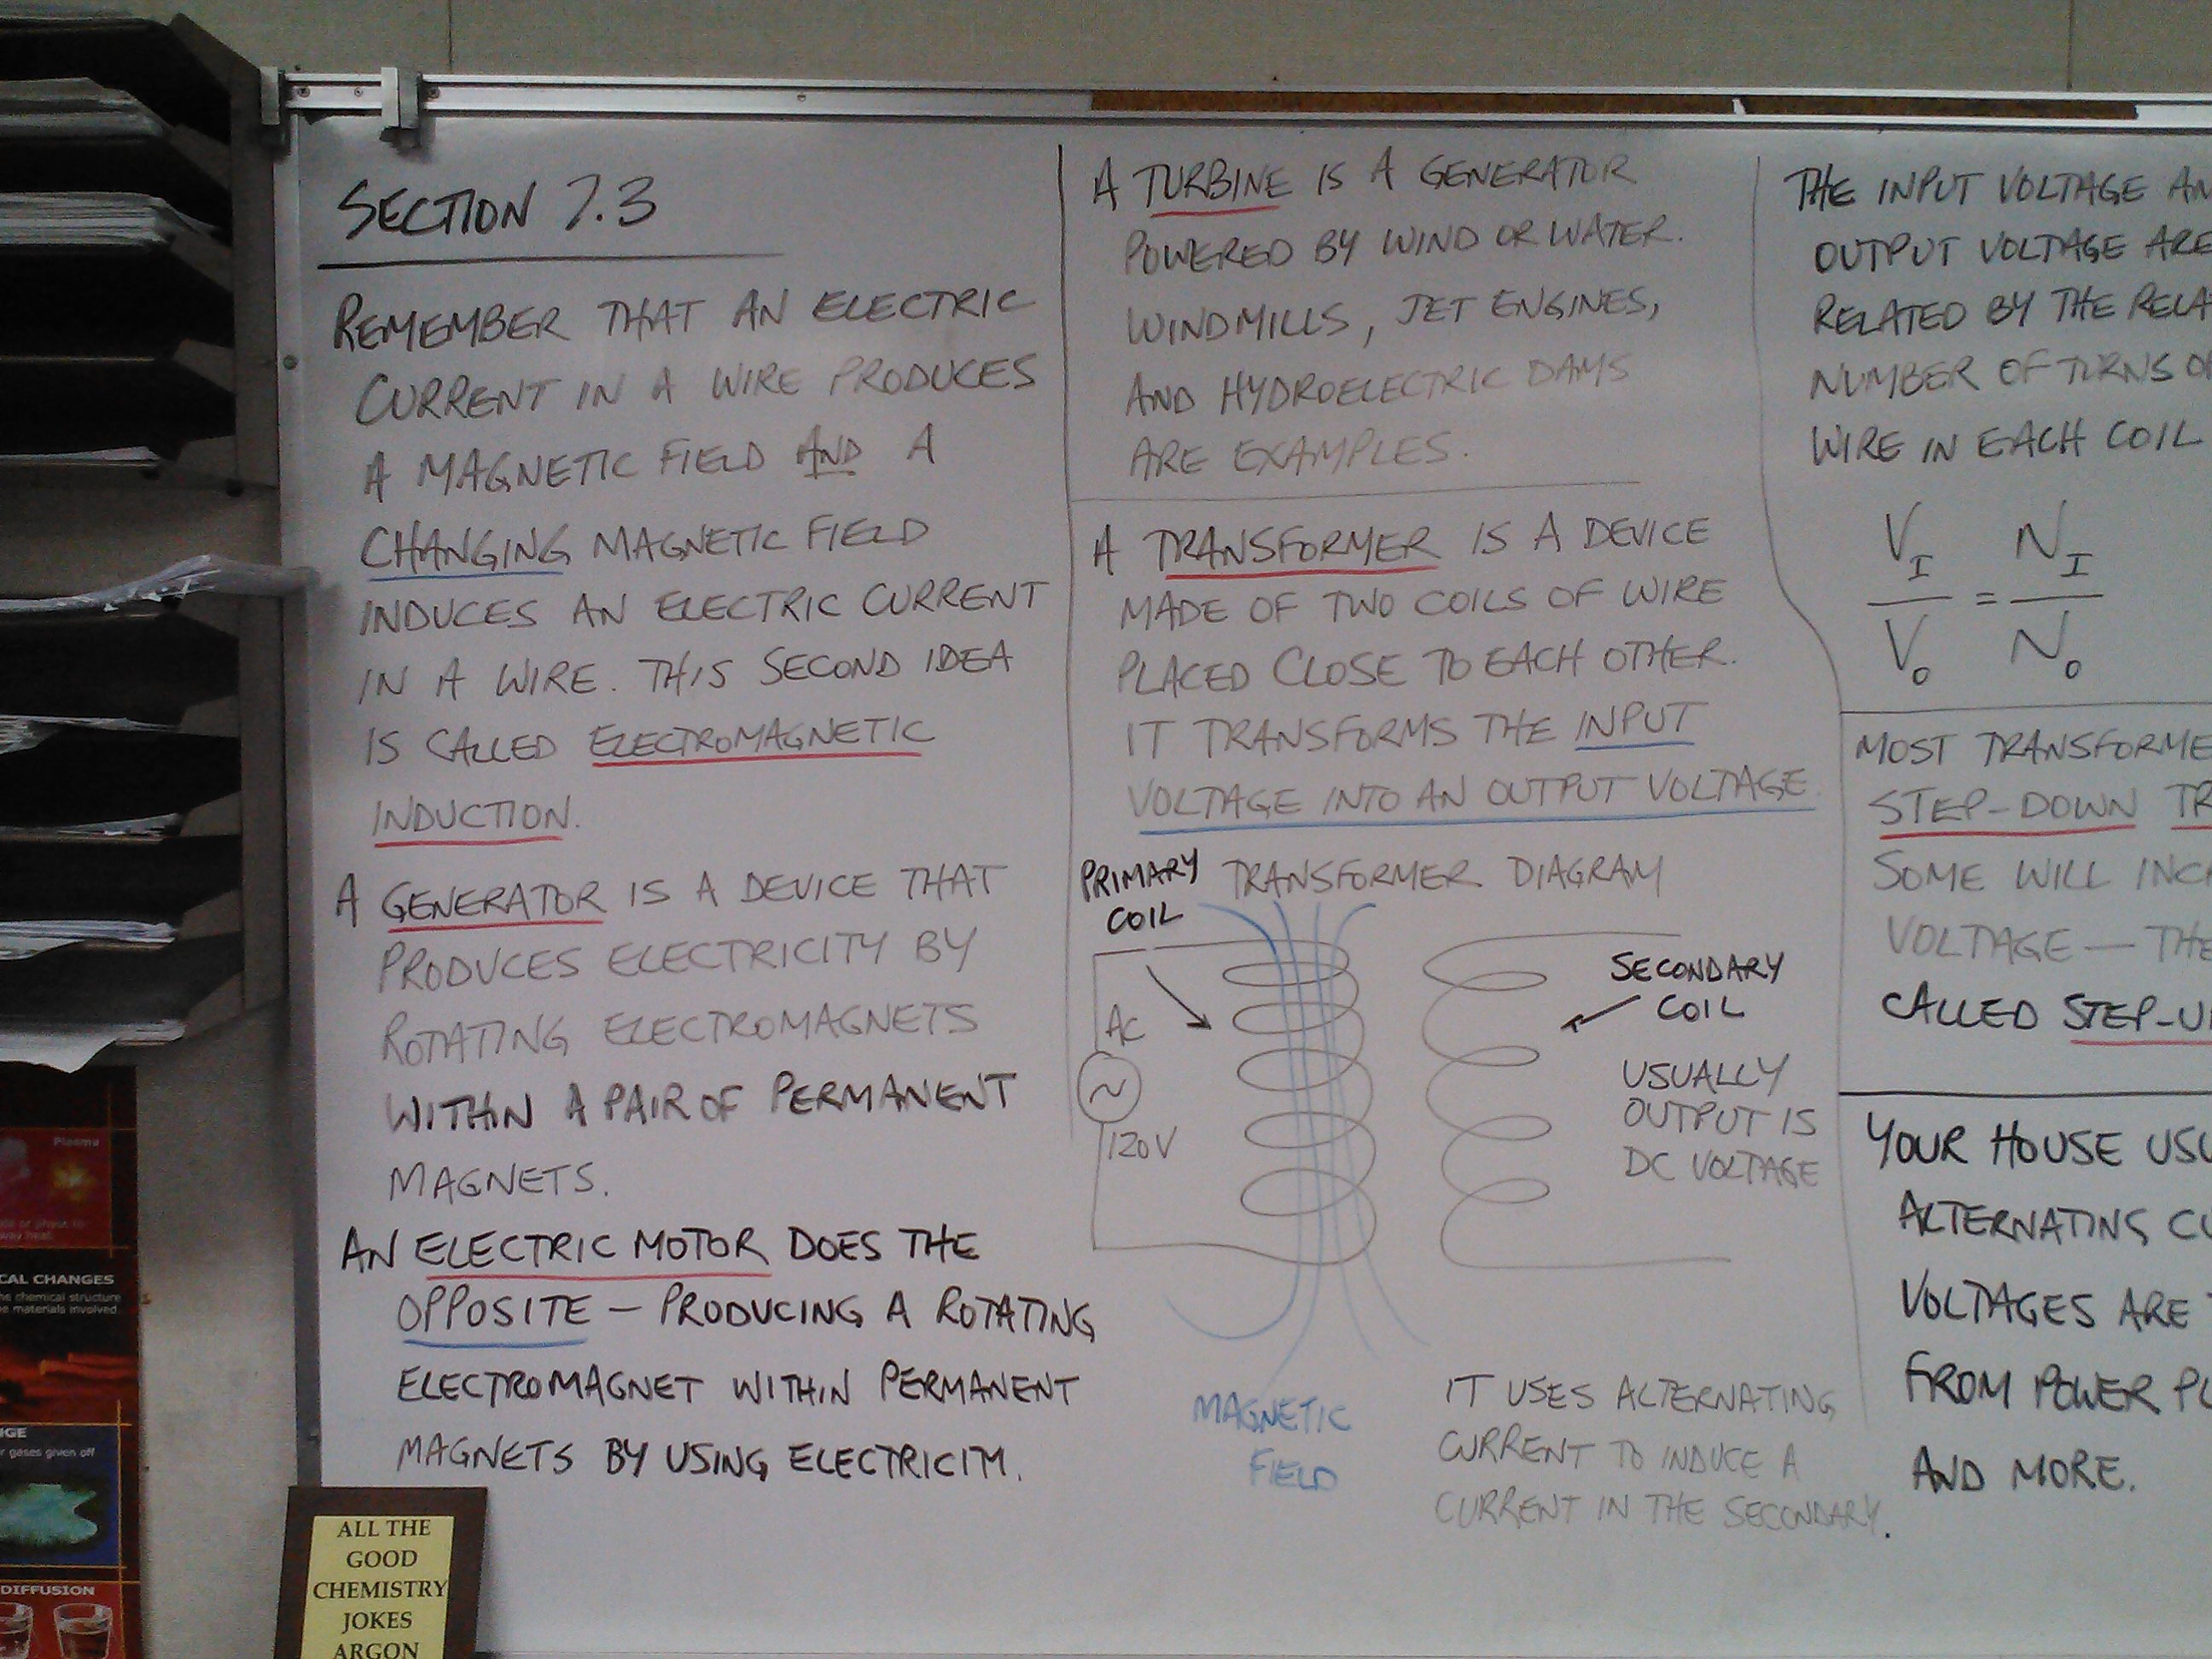 SECTION 7.3
REMEMBER THAT AN ELECTRIC
CURRENT IN A WIRE PRODUCES
A MAGNETIC FIELD AND A
CHANGING MAGNETIC FIELD
INDUCES AN ELECTRIC CURRENT
IN A WIRE. THIS SECOND IDEA
IS CALLED ELECTROMAGNETIC
INDUCTION.
A GENERATOR IS A DEVICE THAT
PRODUCES ELECTRICITY BY
ROTATING ELECTROMAGNETS
WITHIN A PAIR OF PERMANENT
MAGNETS.
AN ELECTRIC MOTOR DOES THE
OPPOSITE — PRODUCING A ROTATING
ELECTROMAGNET WITHIN PERMANENT
MAGNETS BY USING ELECTRICITY.
A TURBINE IS A GENERATOR
POWERED BY WIND OR WATER.
WINDMILLS, JET ENGINES,
AND HYDROELECTRIC DAMS
ARE EXAMPLES.
A TRANSFORMER IS A DEVICE
MADE OF TWO COILS OF WIRE
PLACED CLOSE TO EACH OTHER.
IT TRANSFORMS THE INPUT
VOLTAGE INTO AN OUTPUT VOLTAGE.
TRANSFORMER DIAGRAM
PRIMARY
COIL
AC
120V
SECONDARY
COIL
USUALLY
OUTPUT IS
DC VOLTAGE
MAGNETIC
FIELD
IT USES ALTERNATING
CURRENT TO INDUCE A
CURRENT IN THE SECONDARY.
THE INPUT VOLTAGE AN
OUTPUT VOLTAGE ARE
RELATED BY THE RELA
NUMBER OF TURNS O
WIRE IN EACH COIL
V_I / V_O = N_I / N_O
MOST TRANSFORME
STEP-DOWN TR
SOME WILL INC
VOLTAGE — THE
CALLED STEP-U
YOUR HOUSE USU
ALTERNATING CU
VOLTAGES ARE
FROM POWER PL
AND MORE.
Plasma
CAL CHANGES
he chemical structure
e materials involved
GE
r gases given off
DIFFUSION
ALL THE
GOOD
CHEMISTRY
JOKES
ARGON